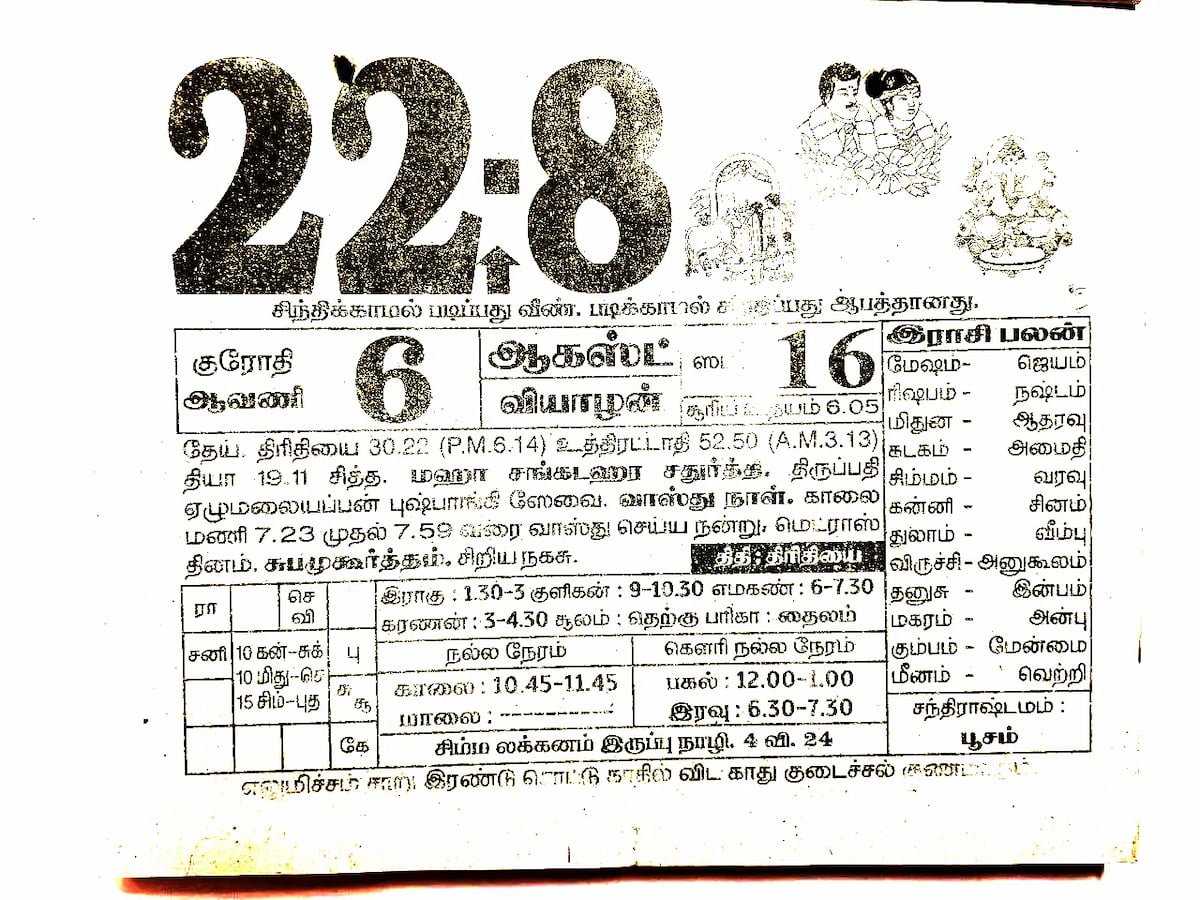 22-8
சிந்திக்காமல் படிப்பது வீண். படிக்காமல் சிந்திப்பது ஆபத்தானது.
குரோதி
ஆவணி
6
ஆகஸ்ட்
வியாழன்
16
சூரிய உதயம் 6.05
தேய். திரிதியை 30.22 (P.M.6.14) உத்திரட்டாதி 52.50 (A.M.3.13)
தியா 19.11 சித்த. மஹா சங்கடஹர சதுர்த்தி. திருப்பதி
ஏழுமலையப்பன் புஷ்பாங்கி ஸேவை. வாஸ்து நாள். காலை
மணி 7.23 முதல் 7.59 வரை வாஸ்து செய்ய நன்று. மெட்ராஸ்
தினம். சுபமுகூர்த்தம். சிறிய நகசு.
திதி : திரிதியை
இராசி பலன்
மேஷம்- ஜெயம்
ரிஷபம் - நஷ்டம்
மிதுன - ஆதரவு
கடகம் - அமைதி
சிம்மம் - வரவு
கன்னி - சினம்
துலாம் - வீம்பு
விருச்சி- அனுகூலம்
தனுசு - இன்பம்
மகரம் - அன்பு
கும்பம் - மேன்மை
மீனம் - வெற்றி
சந்திராஷ்டமம் :
பூசம்
ரா
செ
வி
சனி
10 கன்-சுக்
10 மிது-செ
15 சிம்-புத
பு
சு
சூ
கே
இராகு : 1.30-3 குளிகன் : 9-10.30 எமகண் : 6-7.30
கரணன் : 3-4.30 சூலம் : தெற்கு பரிகா : தைலம்
நல்ல நேரம்
கௌரி நல்ல நேரம்
காலை : 10.45-11.45
பகல் : 12.00-1.00
மாலை : ----------
இரவு : 6.30-7.30
சிம்ம லக்கனம் இருப்பு நாழி. 4 வி. 24
எலுமிச்சம் சாறு இரண்டு சொட்டு காதில் விட காது குடைச்சல் குணமாகும்.